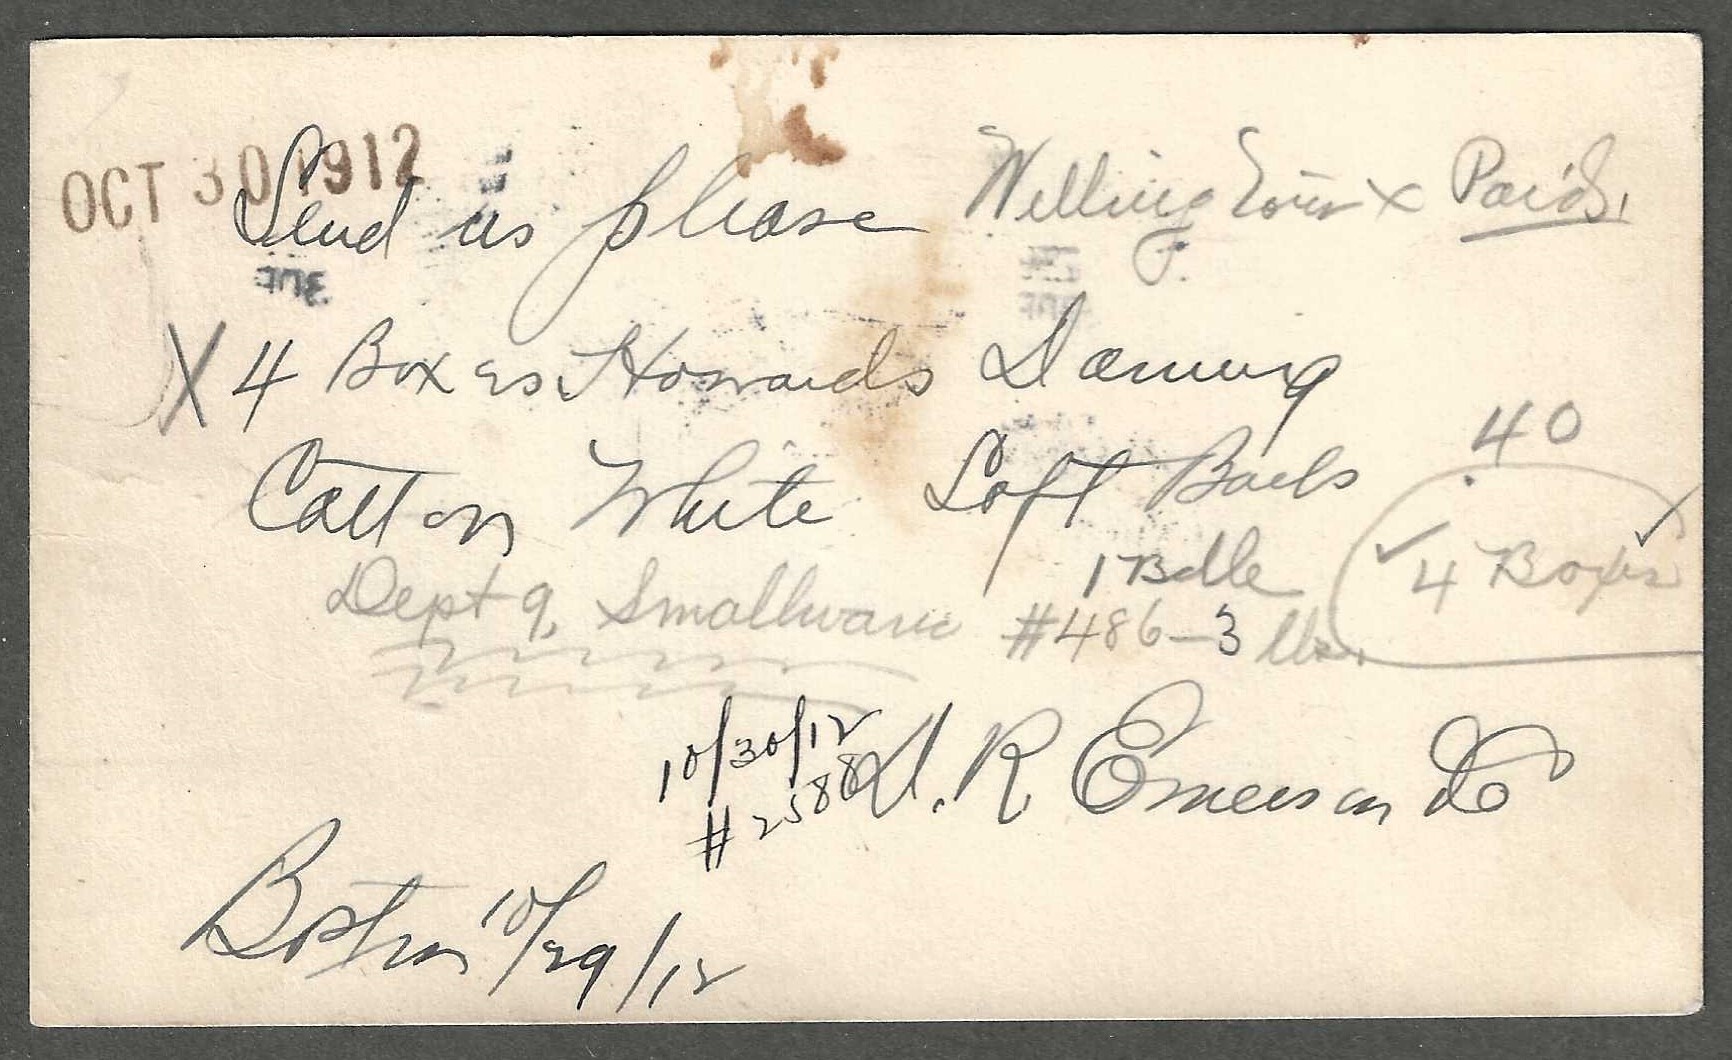 OCT 30 1912
Send us please
Paid.
X 4 Boxes Howards Darning
Cotton White Soft Balls
40
4 Boxes
Dept 9, Smallware
1 Bdle
#486-3 lbs.
10/30/12
#2588
R Emerson Co
Boston 10/29/12